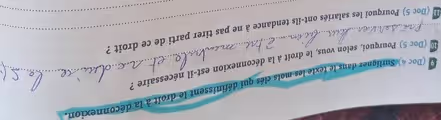 9 (Doc 4) Soulignez dans le texte les mots clés qui définissent le droit à la déconnexion.
10 (Doc 5) Pourquoi, selon vous, le droit à la déconnexion est-il nécessaire ?
bien être mentale et
11 (Doc 5) Pourquoi les salariés ont-ils tendance à ne pas tirer parti de ce droit ?